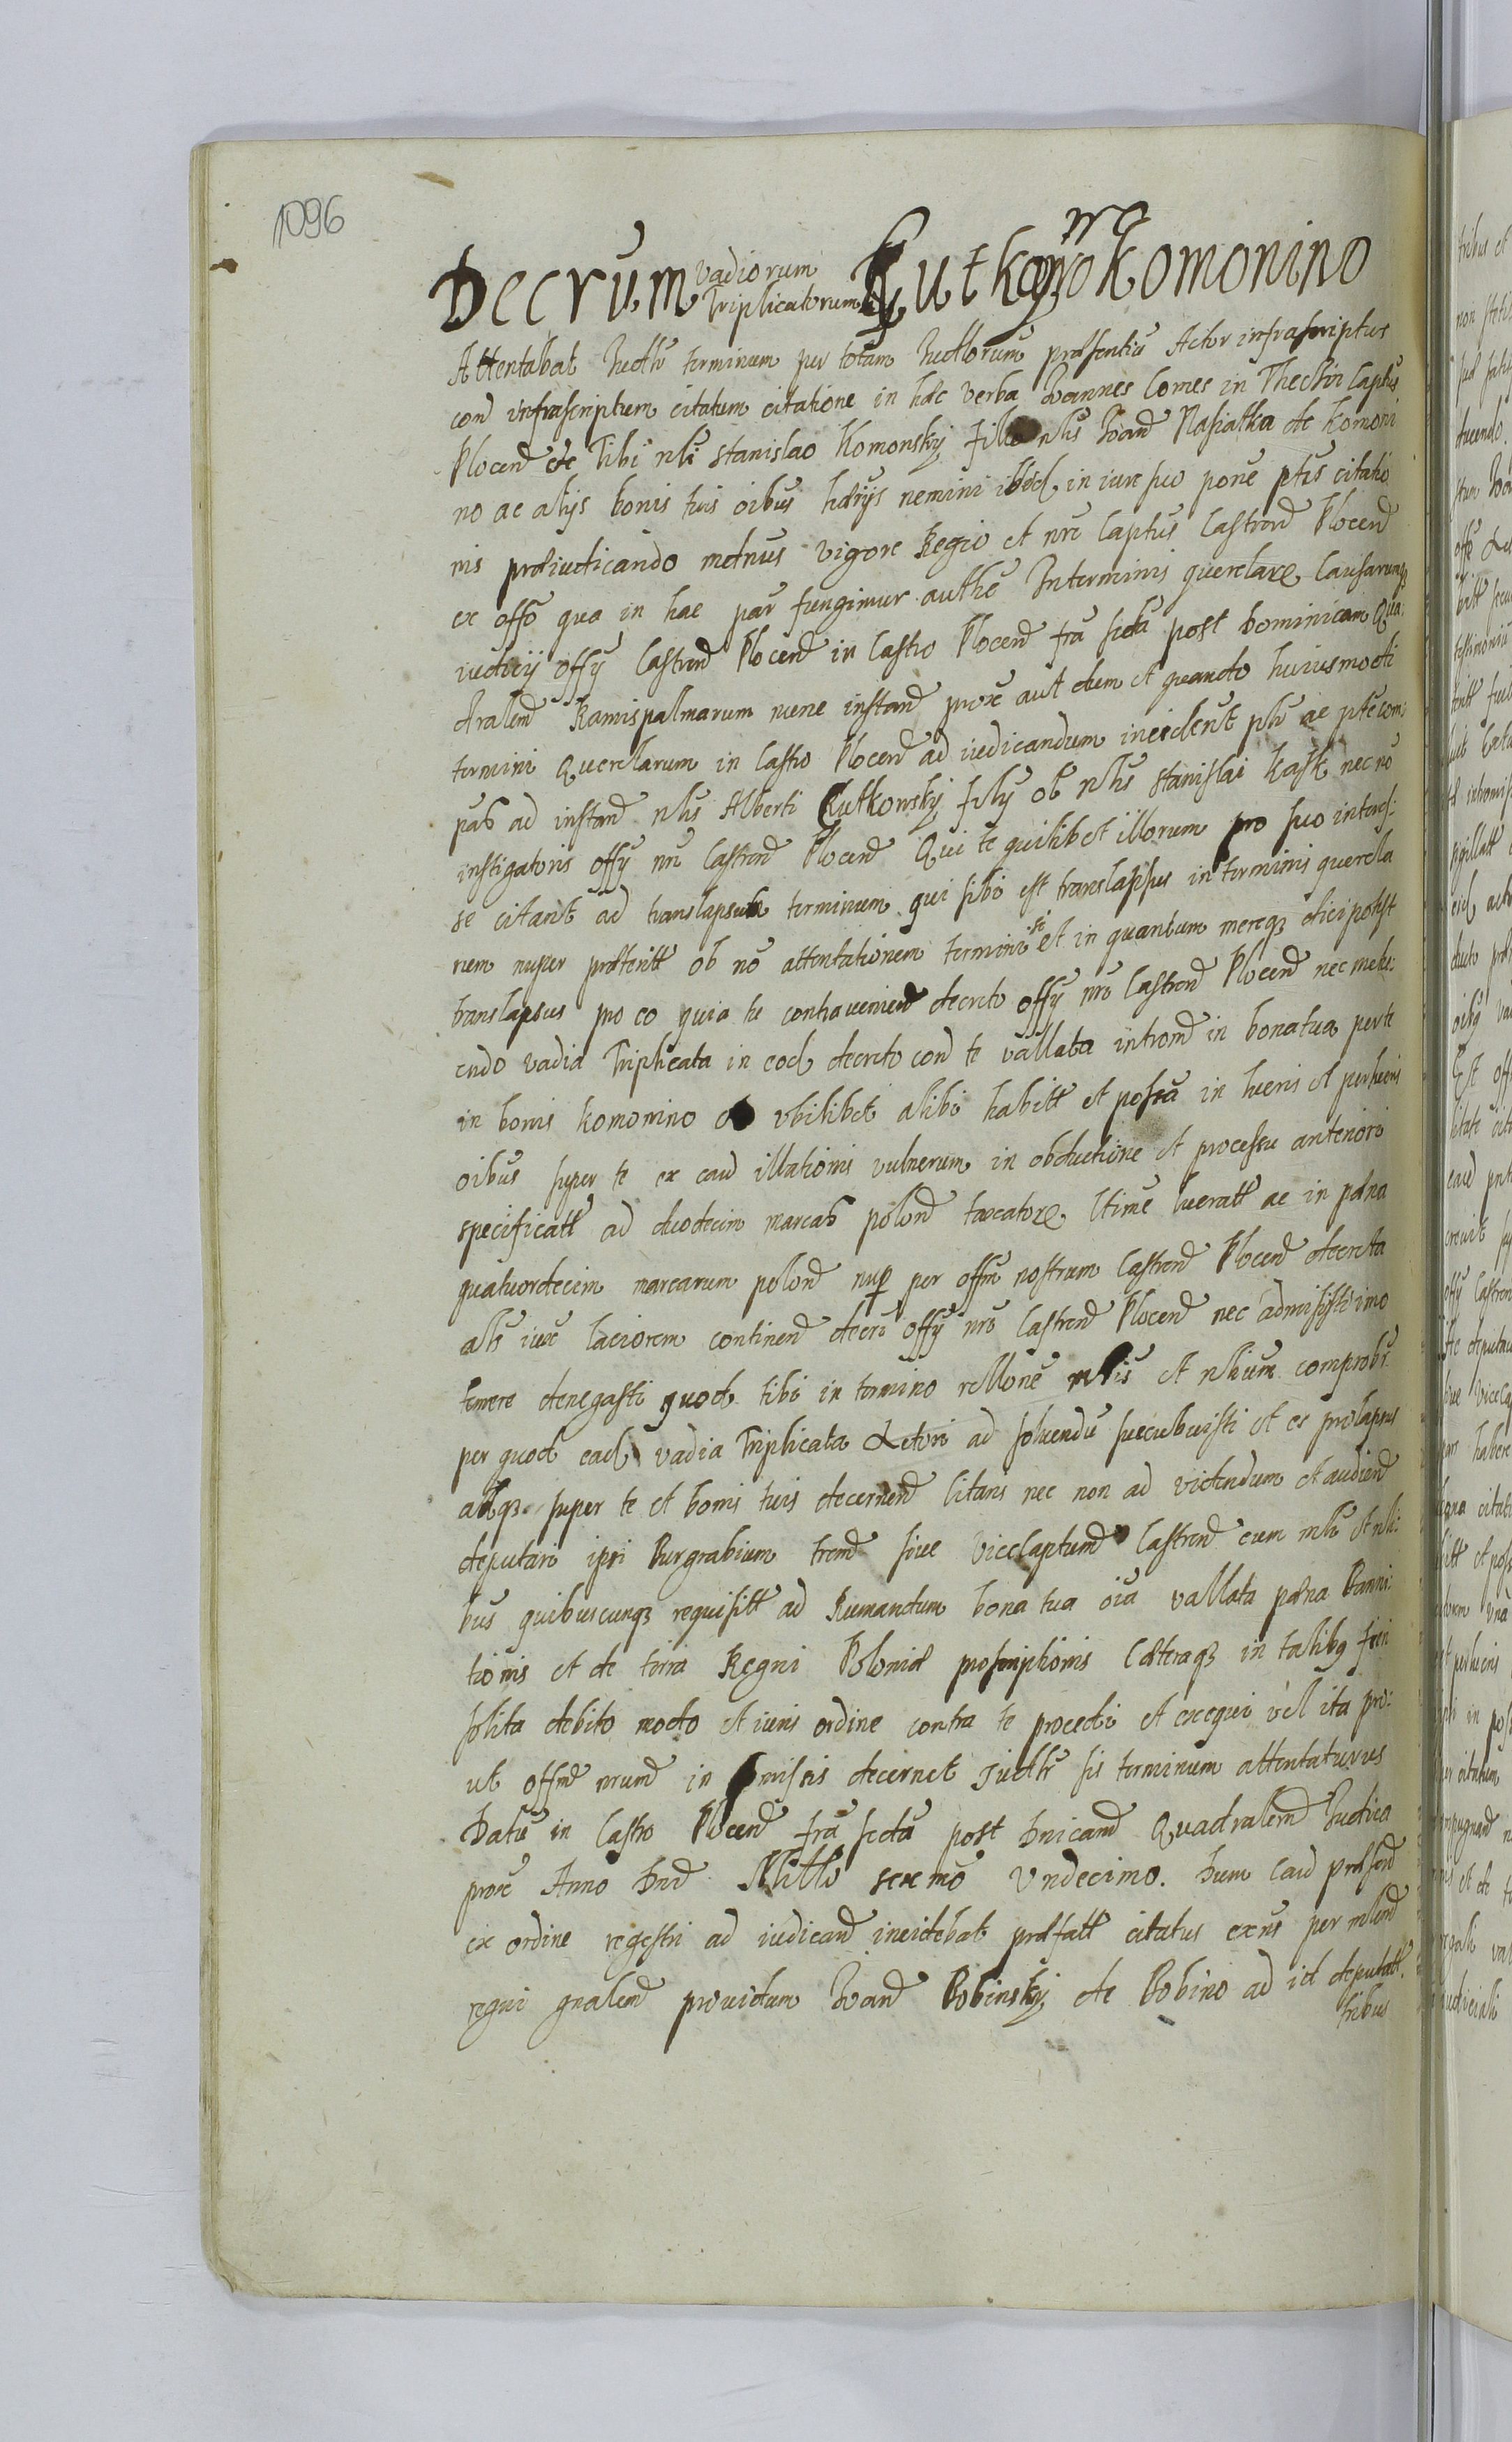 1096
Decrūm vadiorum Triplicatorum Rutkow Komonino
Attentabat Judtr terminum per totam Judtlorum præsentiā Actor infrascriptus
con infrascriptum citatum citatione in hæc verba Joannes Comes in Thectin Captus
Plocen etc Tibi nli Stanislao Komonsky filio nlis Joan Nasiatka de Komoni
no ac alijs bonis tuis oibus hærijs nemini ibid in iure suo pone ptis citatio
nis præiudicando mctnus vigore Regio et nrē Captus Castren Plocen
ex offo qua in hac par fungimur authē In terminis querelar Causarumq
iudicij offy Castren Plocen in Castro Plocen fra sexta post Dominicam Qua
dralem Ramispalmarum nunc instan prox aut dum et quando huiusmodi
termini Querelarum in Castro Plocen ad iudicandum incident plr ac pte com
pas ad instan nlis Alberti Rutkowsky fily ol nlis Stanislai Kask nec nō
instigatoris offy nri Castren Plocen Qui te quilibet illorum pro suo interes
se citant ad translapsum terminum qui sibi est translapsus in terminis querella
rum nuper præteritt ob nō attentationem termini si et in quantum mereq dici potest
translapsus pro eo quia te contraveniend decreto offy nrō Castren Plocen nec metu
endo vadia Triplicata in eod decreto con te vallata introm in bona tua per te
in bonis Komonino et ubilibet alibi habitt et possa in lucris et per lucris
oibus super te ex cau illationis vulnerum in obductione et processu anteriori
specificatt ad duodecim marcas polon taxator ltime lueratt ac in pæna
quatuordecim marcarum polon nup per offm nostrum Castren Plocen decreta
als iuxe laciorem continen decri offy nrō Castren Plocen nec admisisti imo
temere denegasti quod tibi in termino rellone mlis et nlium comprobr
per quod ead vadia Triplicata Actori ad solvendū succubuisti et es prolapsus
adq super te et bonis tuis decernen Citaris nec non ad videndum et audien
deputari ipsi Burgrabium trem sive Vicecaptum Castren cum mlr et nli
bus quibuscunq requisitt ad Rumandum bona tua oia vallata pæna Banni
tionis et de terra Regni Poloniæ proscriptionis Cæteraq in talibq fieri
solita debito modo et iuris ordine contra te procedi et exequi vel ita pro
ut offm nrum in pmissis decernet Judtlr sis terminum attentaturus
Datū in Castro Plocen fra sexta post Dnicam Quadralem Judica
prox Anno Dni Millo sexmo Undecimo. Dum Cau præsen
ex ordine regestri ad iudican incidebat præfatt citatus exns per mlum
regni gnalem providum Joan Bobinsky de Bobino ad id deputatt
tribus